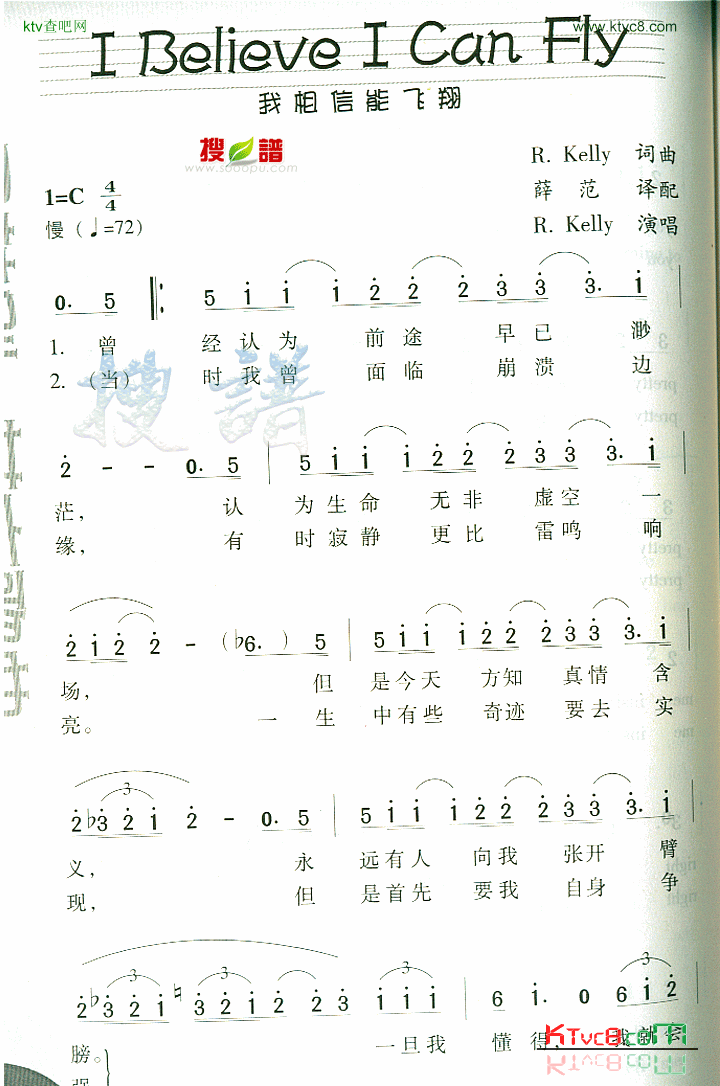 ktv查吧网
www.ktvc8.com
I Believe I Can Fly
我相信能飞翔
搜谱
www.sooopu.com
R. Kelly 词曲
1=C 4/4
薛范 译配
慢（♩=72）
R. Kelly 演唱
0. 5 5 i i i 2 2 2 3 3 3. i
1. 曾 经认为 前途 早已 渺
2.（当） 时我曾 面临 崩溃 边
搜譜
2 - - 0. 5 5 i i i 2 2 2 3 3 3. i
茫， 认 为生命 无非 虚空 一
缘， 有 时寂静 更比 雷鸣 响
2 i 2 2 - （♭6.） 5 5 i i i 2 2 2 3 3 3. i
场， 但 是今天 方知 真情 含
亮。 一 生 中有些 奇迹 要去 实
3
2 ♭3 2 i 2 - 0. 5 5 i i i 2 2 2 3 3 3. i
义， 永 远有人 向我 张开 臂
现， 但 是首先 要我 自身 争
3 3 3 3 3
2 ♭3 2 i ♮3 2 i 2 2 3 i i i 6 i. 0 6 i 2
膀。 一旦我 懂得， 我就会
KTvc8.com